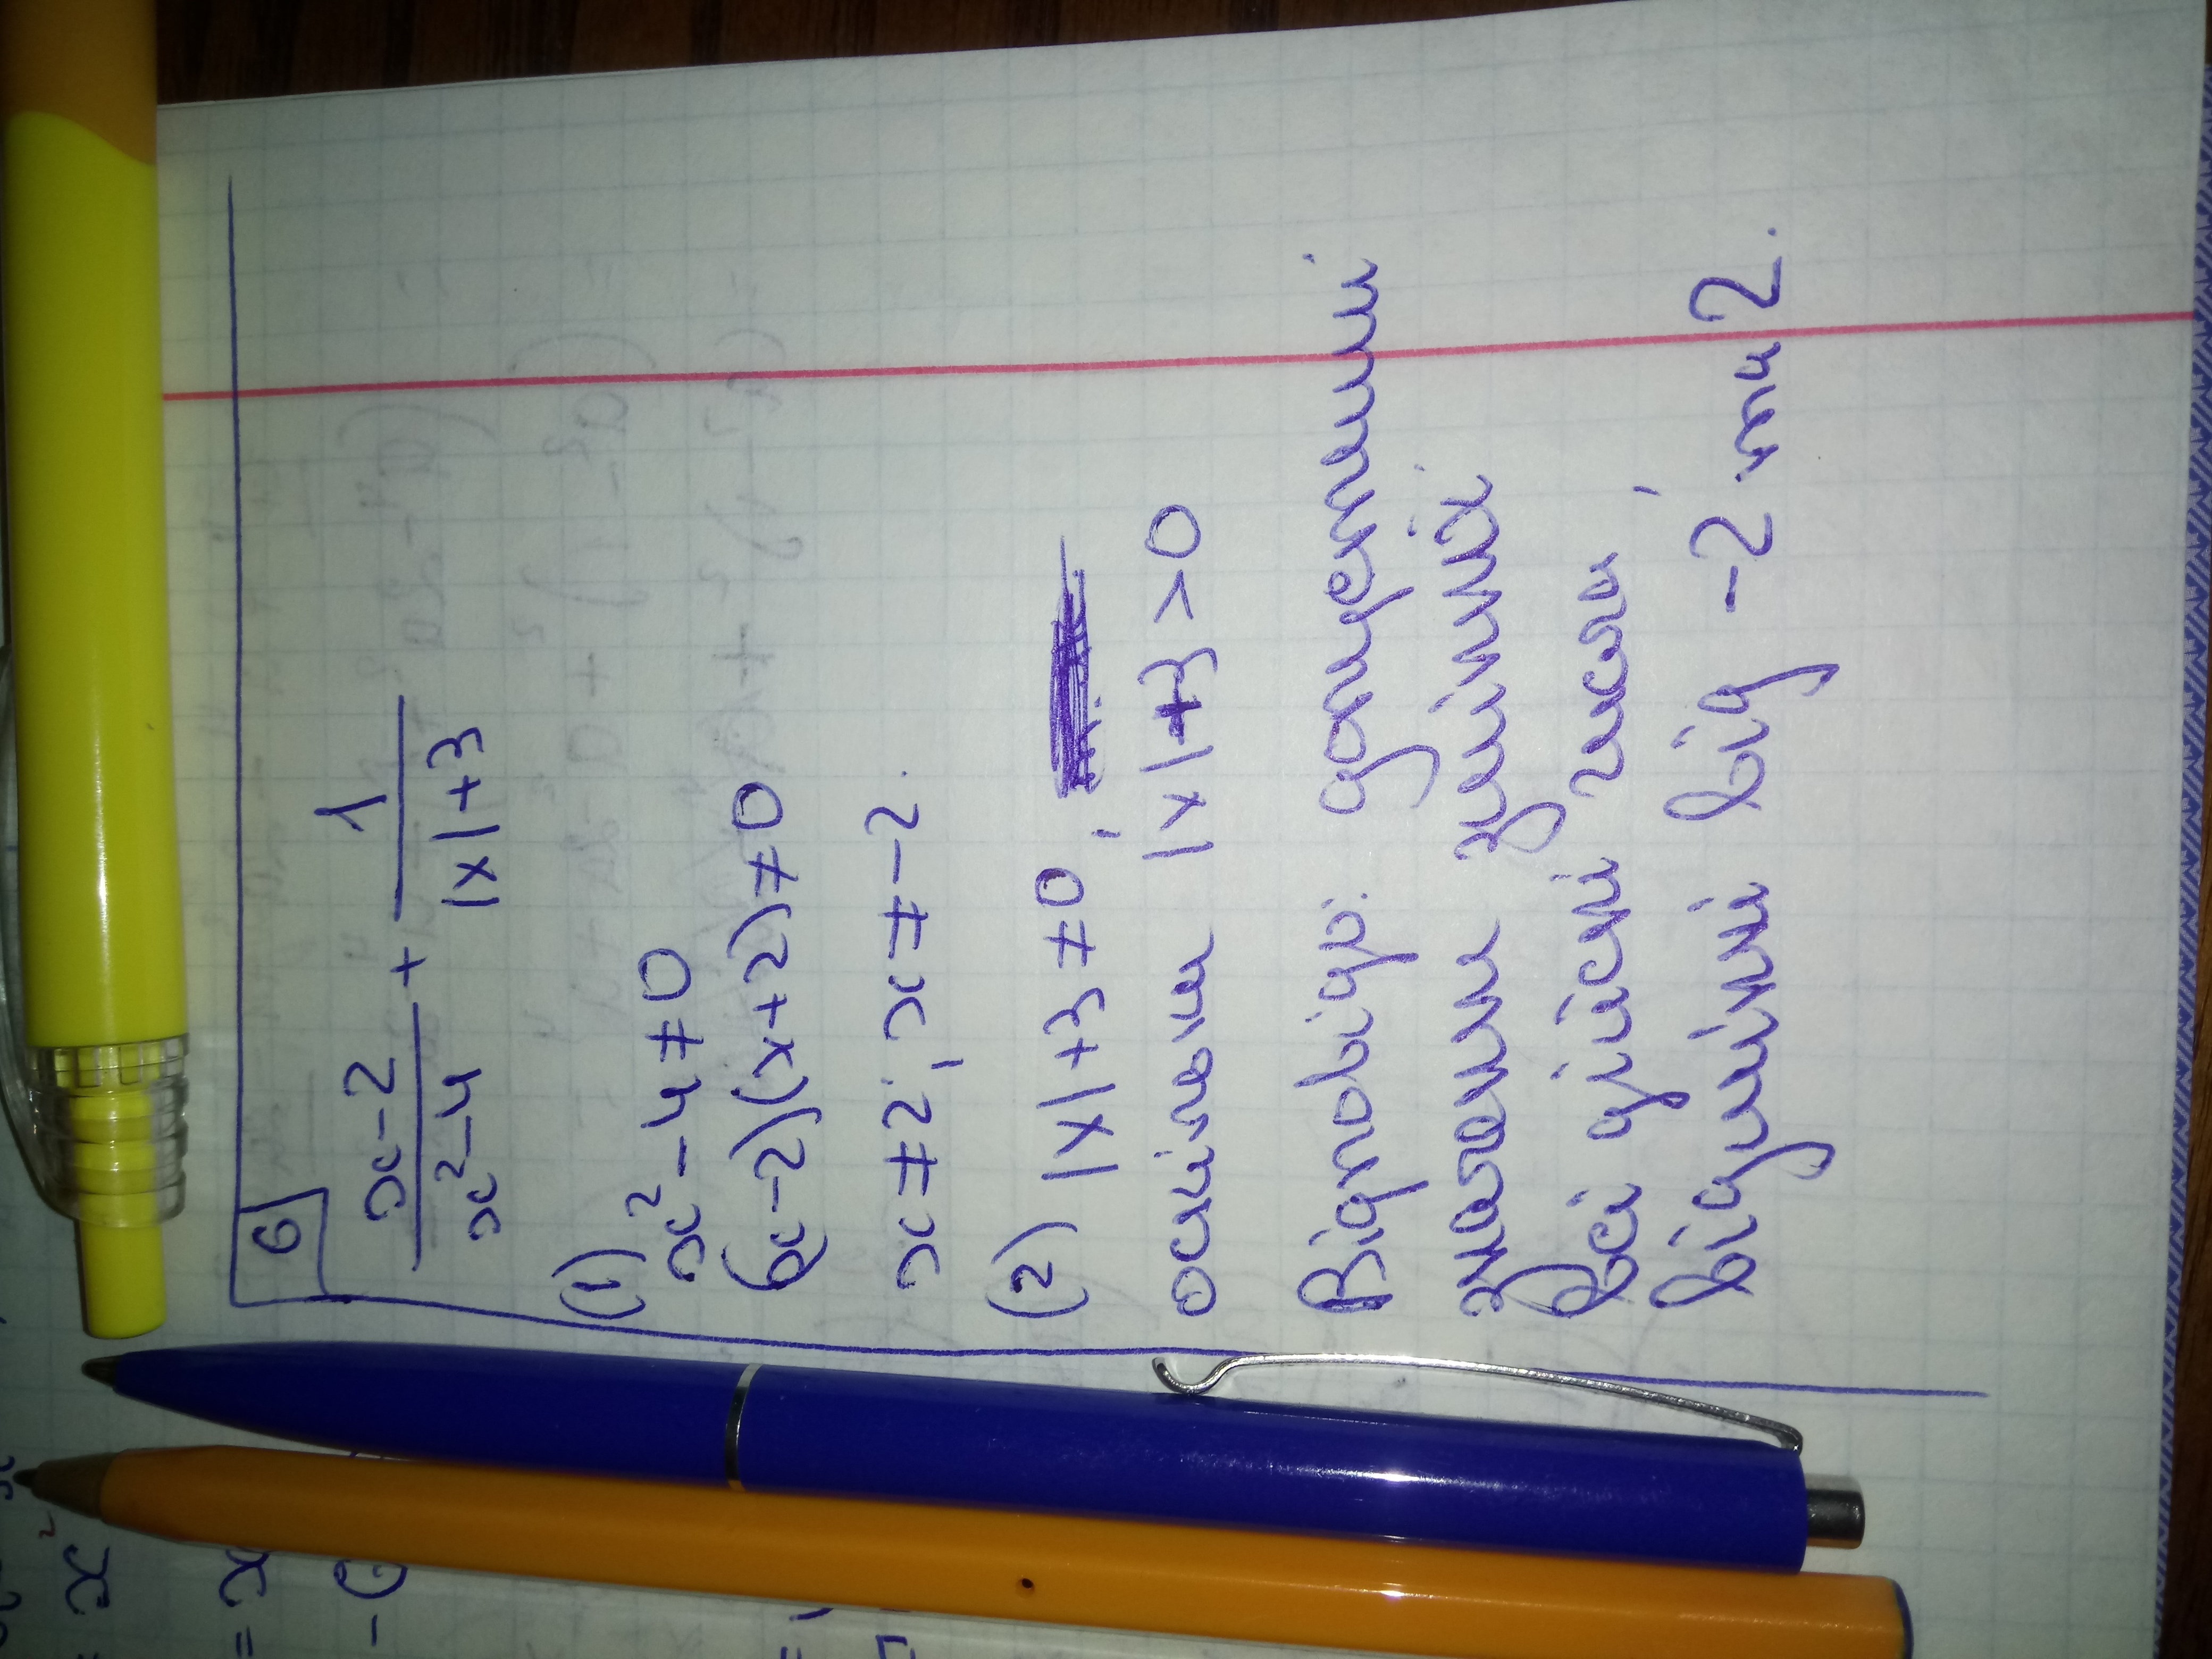 6
x-2/x²-4 + 1/|x|+3
(1)
x²-4≠0
(x-2)(x+2)≠0
x≠2; x≠-2.
(2) |x|+3≠0,
оскільки |x|+3>0
Відповідь: допустимими
значеннями змінних
всі дійсні числа,
відмінні від -2 та 2.